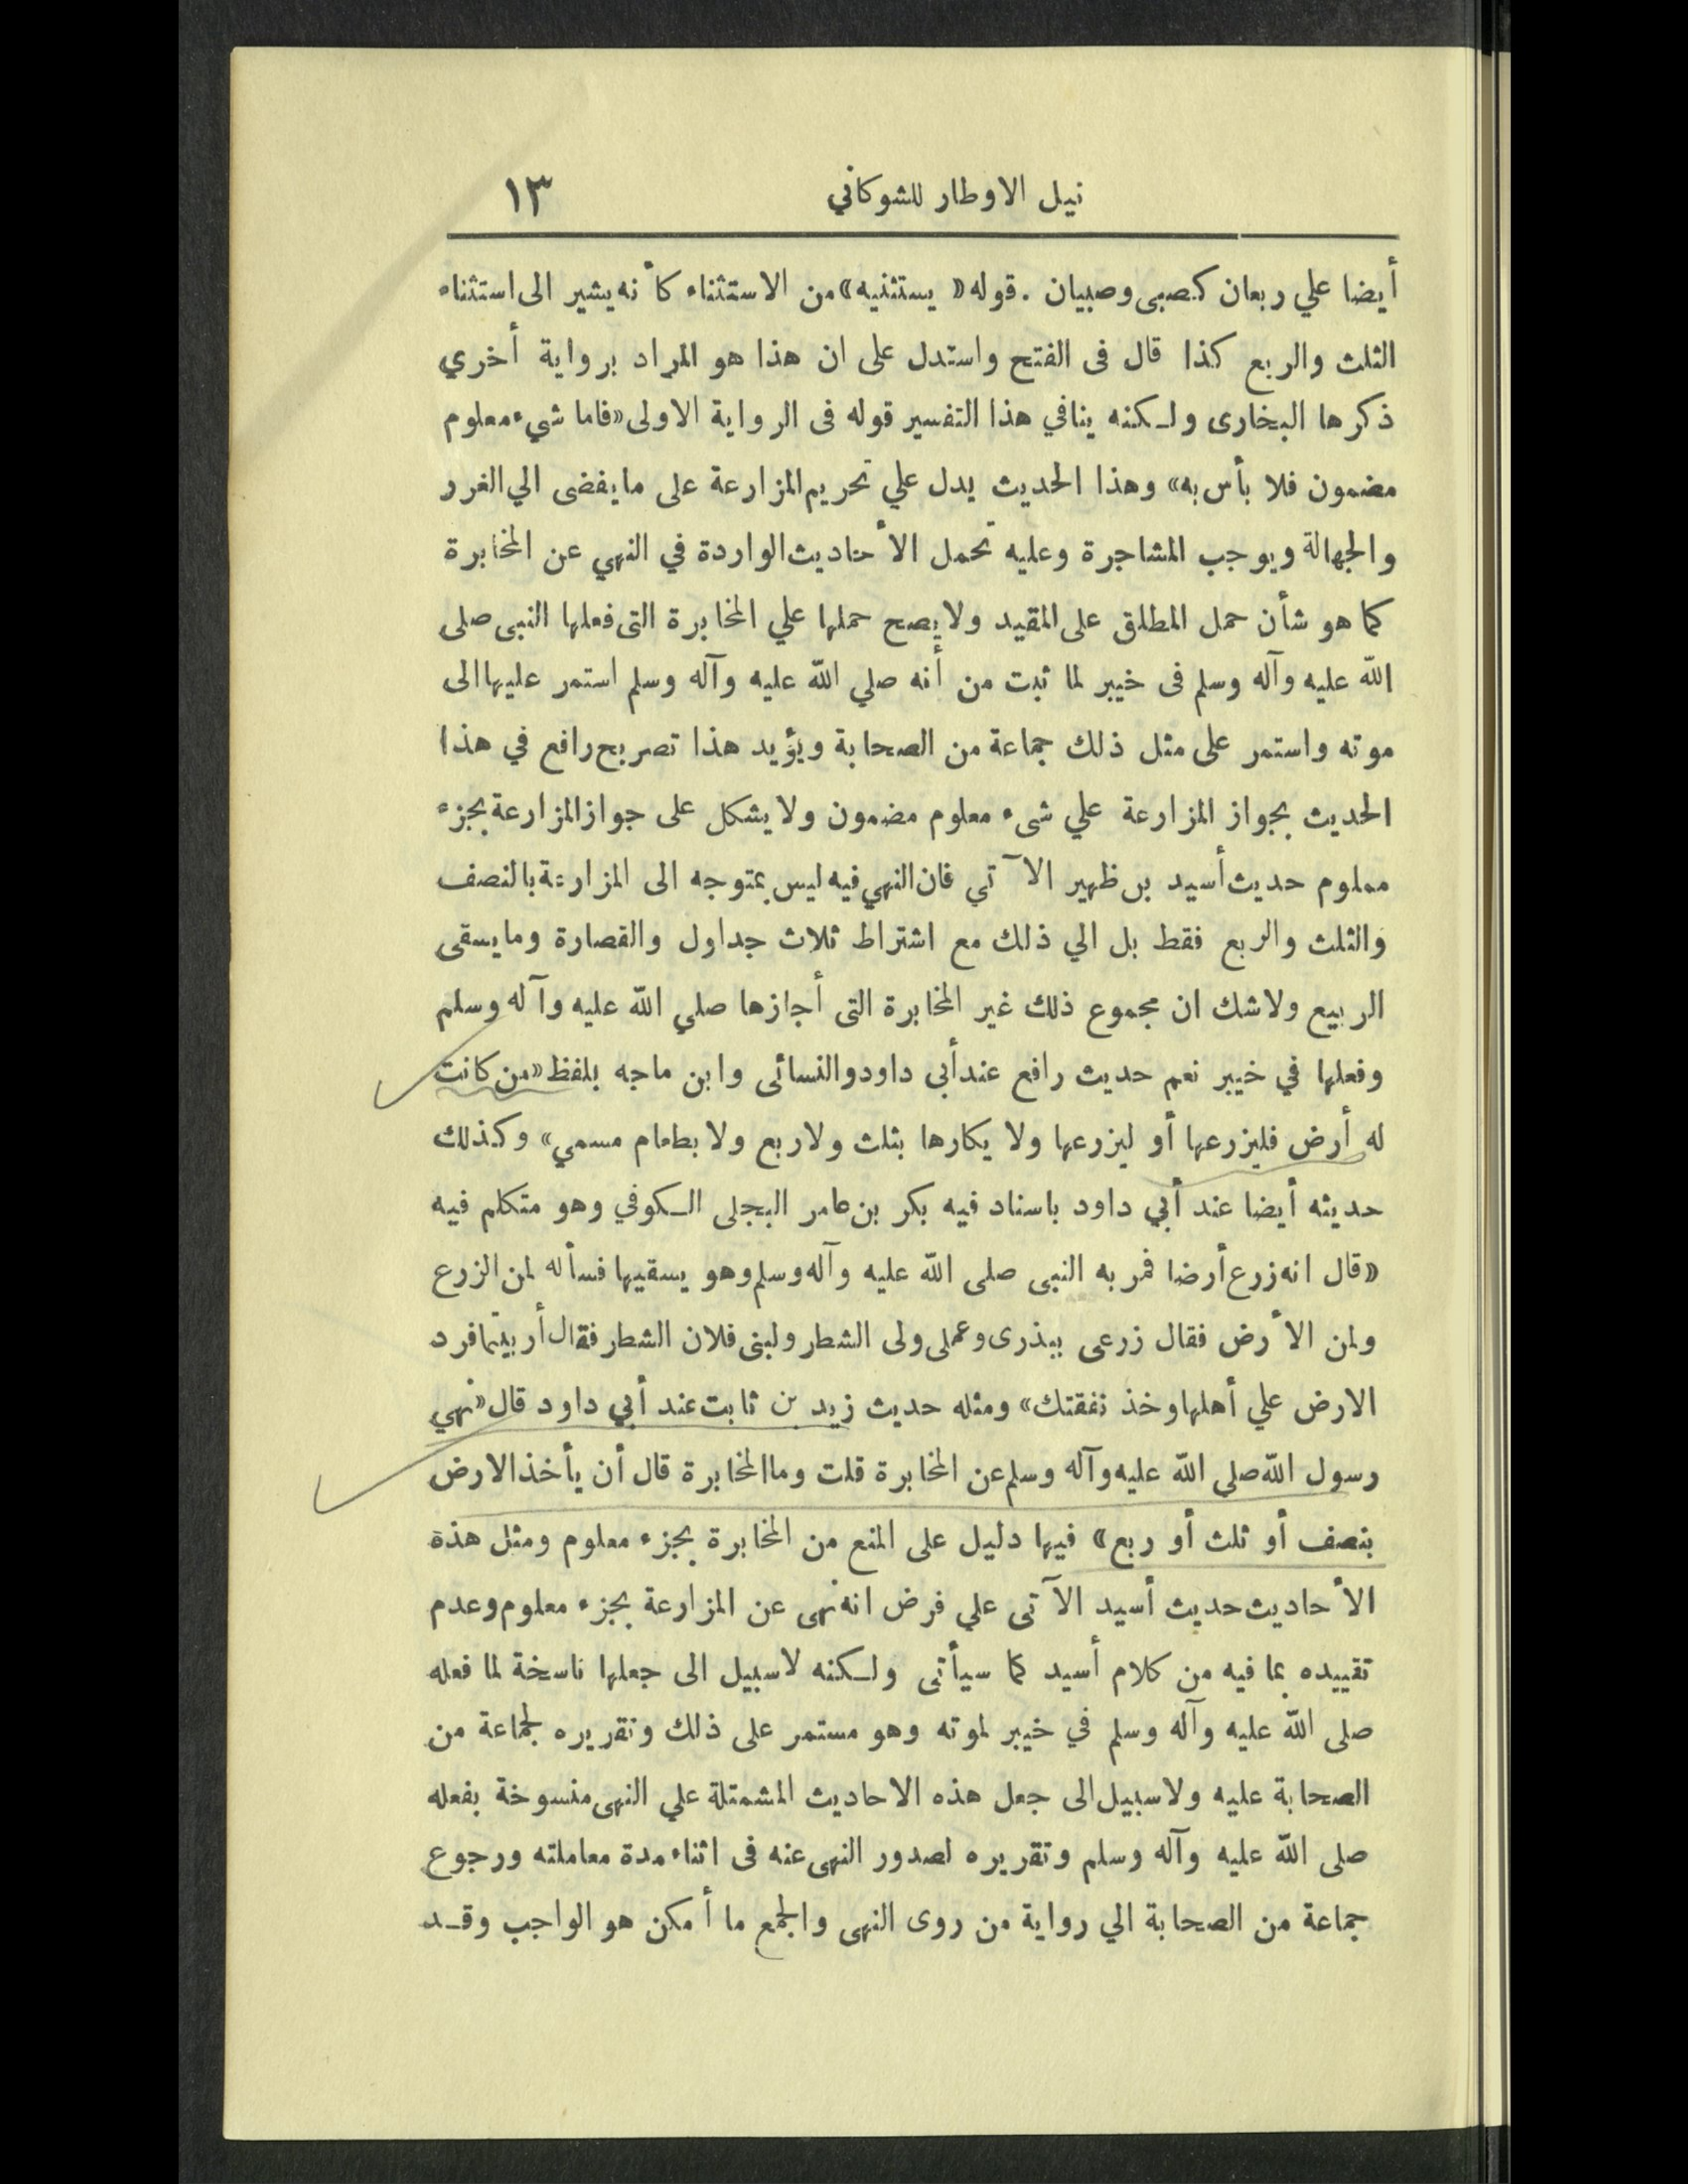 نيل الاوطار للشوكاني ١٣
أيضا علي ربعان كصبى وصبيان . قوله « يستثنيه» من الاستثناء كأنه يشير الى استثناء
الثلث والربع كذا قال فى الفتح واستدل على ان هذا هو المراد برواية أخري
ذكرها البخارى ولكنه ينافي هذا التفسير قوله فى الرواية الاولى «فاما شيء معلوم
مضمون فلا بأس به» وهذا الحديث يدل علي تحريم المزارعة على ما يفضى الي الغرر
والجهالة ويوجب المشاجرة وعليه تحمل الأحاديث الواردة في النهي عن المخابرة
كما هو شأن حمل المطلق على المقيد ولا يصح حملها علي المخابرة التى فعلها النبى صلى
الله عليه وآله وسلم فى خيبر لما ثبت من أنه صلي الله عليه وآله وسلم استمر عليها الى
موته واستمر على مثل ذلك جماعة من الصحابة ويؤيد هذا تصريح رافع في هذا
الحديث بجواز المزارعة علي شىء معلوم مضمون ولا يشكل على جواز المزارعة بجزء
معلوم حديث أسيد بن ظهير الآتي فان النهي فيه ليس بمتوجه الى المزارعة بالنصف
والثلث والربع فقط بل الي ذلك مع اشتراط ثلاث جداول والقصارة وما يسقى
الربيع ولا شك ان مجموع ذلك غير المخابرة التى أجازها صلي الله عليه وآله وسلم
وفعلها في خيبر نعم حديث رافع عند أبي داود والنسائى وابن ماجه بلفظ «من كانت
له أرض فليزرعها أو ليزرعها ولا يكارها بثلث ولا ربع ولا بطعام مسمي» وكذلك
حديثه أيضا عند أبي داود باسناد فيه بكر بن عامر البجلى الكوفي وهو متكلم فيه
«قال انه زرع أرضا فمر به النبى صلى الله عليه وآله وسلم وهو يسقيها فسأله لمن الزرع
ولمن الأرض فقال زرعى ببذرى وعملى ولى الشطر ولبنى فلان الشطر فقال أربيتما فرد
الارض علي أهلها وخذ نفقتك» ومثله حديث زيد بن ثابت عند أبي داود قال «نهي
رسول الله صلي الله عليه وآله وسلم عن المخابرة قلت وما المخابرة قال أن يأخذ الارض
بنصف أو ثلث أو ربع» فيها دليل على المنع من المخابرة بجزء معلوم ومثل هذة
الأحاديث حديث أسيد الآتى علي فرض انه نهى عن المزارعة بجزء معلوم وعدم
تقييده بما فيه من كلام أسيد كما سيأتى ولكنه لا سبيل الى جعلها ناسخة لما فعله
صلى الله عليه وآله وسلم في خيبر لموته وهو مستمر على ذلك وتقريره لجماعة من
الصحابة عليه ولا سبيل الى جعل هذه الاحاديث المشمتلة علي النهى منسوخة بفعله
صلى الله عليه وآله وسلم وتقريره لصدور النهى عنه فى اثناء مدة معاملته ورجوع
جماعة من الصحابة الي رواية من روى النهى والجمع ما أمكن هو الواجب وقد